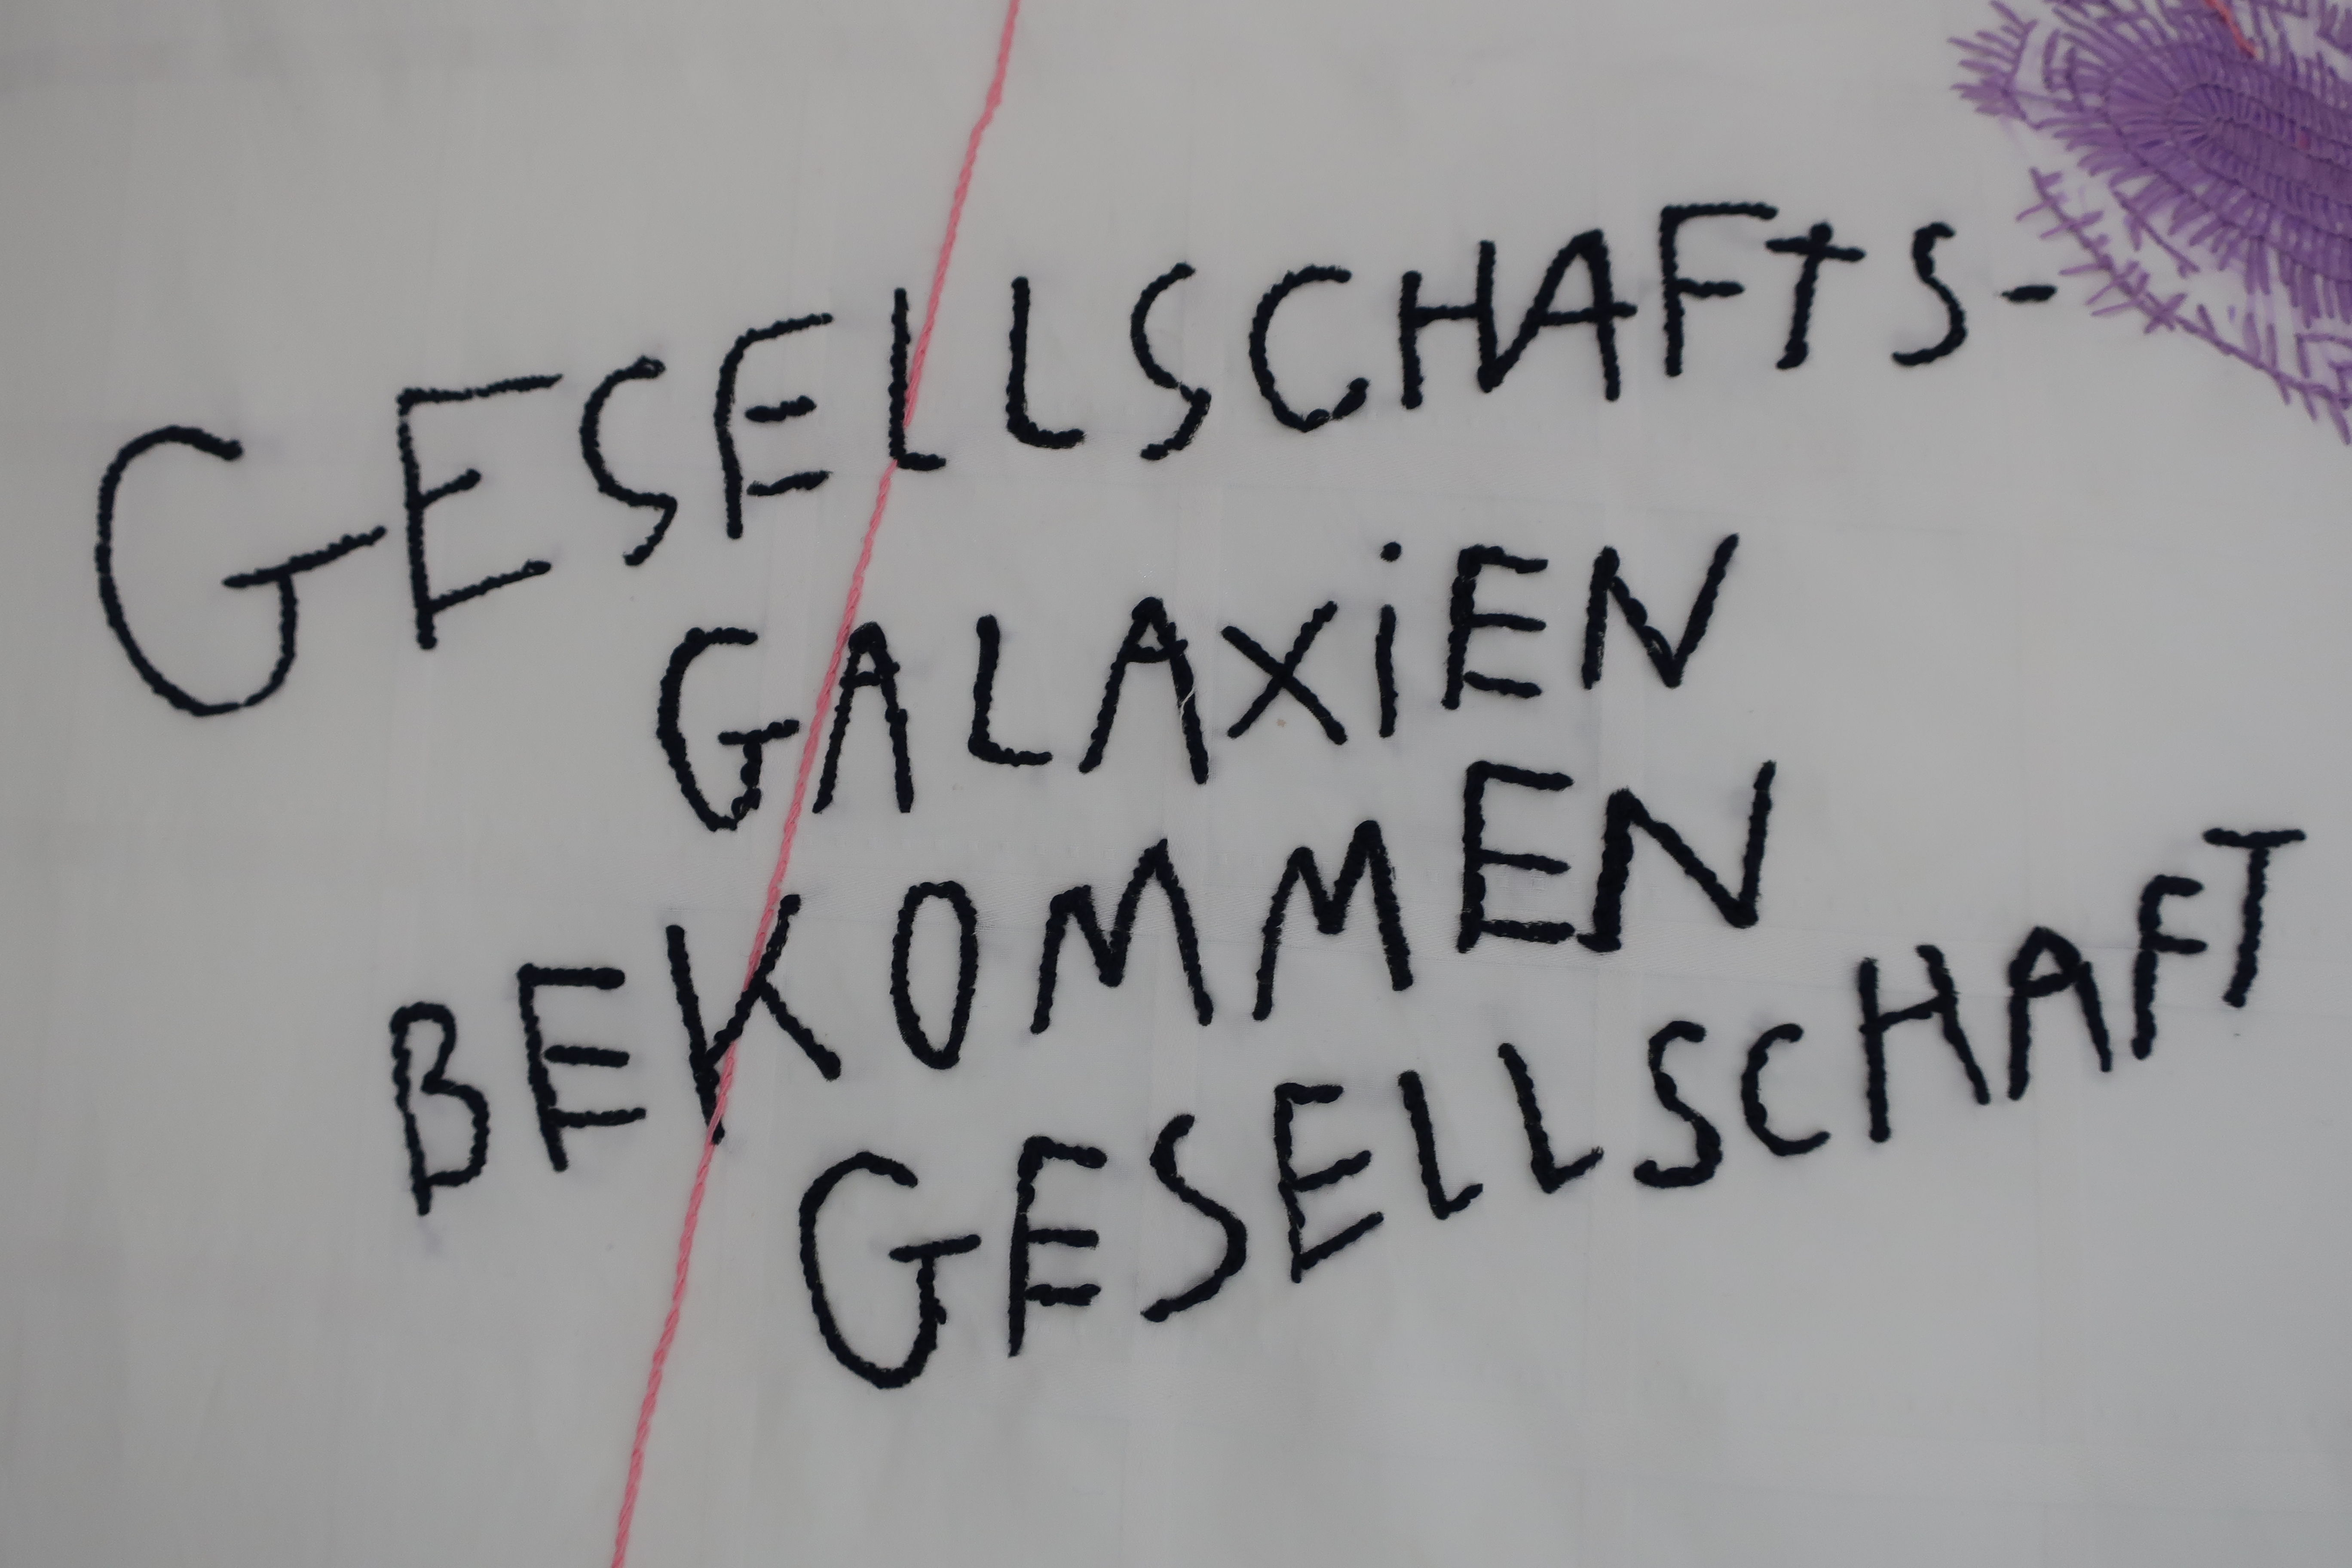 GESELLSCHAFTS-
GALAXiEN
BEKOMMEN
GESELLSCHAFT